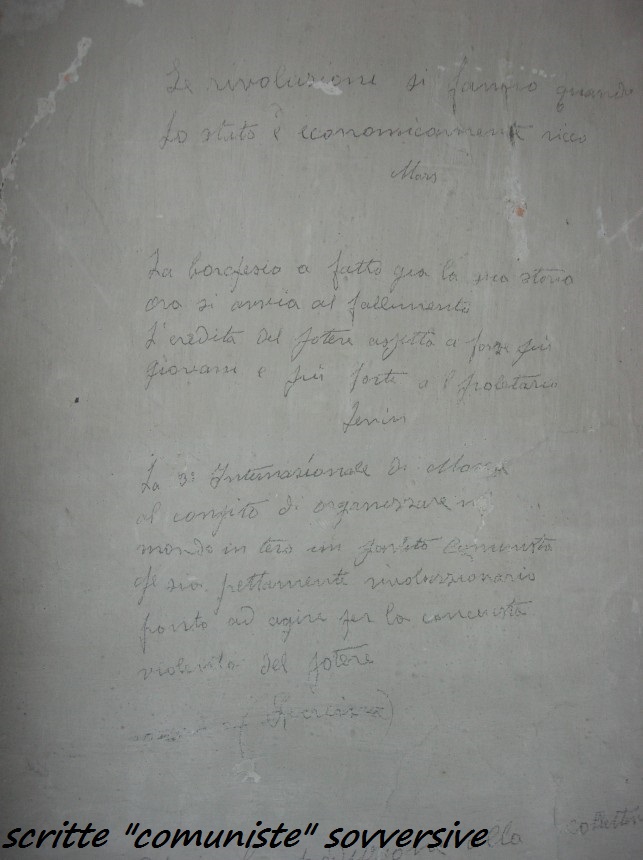 Le rivoluzione si fanno quando
Lo stato è economicamente ricco
Marx
La borghesia a fatto gia la sua storia
ora si avvia al fallimento
L'eredità del potere aspetta a forze più
giovani e più forte a l proletario
Lenin
La 3ª Internazionale di Mosca
al compito di organizzare nel
mondo intero un partito comunista
che sia prettamente rivoluzionario
pronto ad agire per la concuista
violenta del potere
scritte "comuniste" sovversive